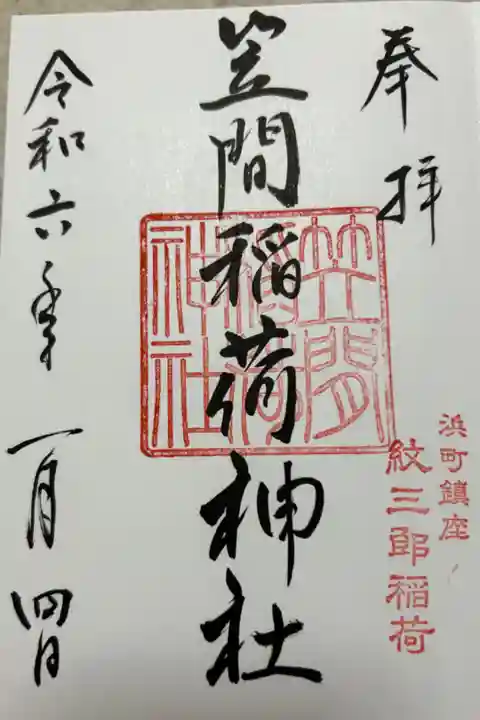 奉拝
浜町鎮座
紋三郎稲荷
笠間稲荷神社
笠間稲荷神社
令和六年一月四日